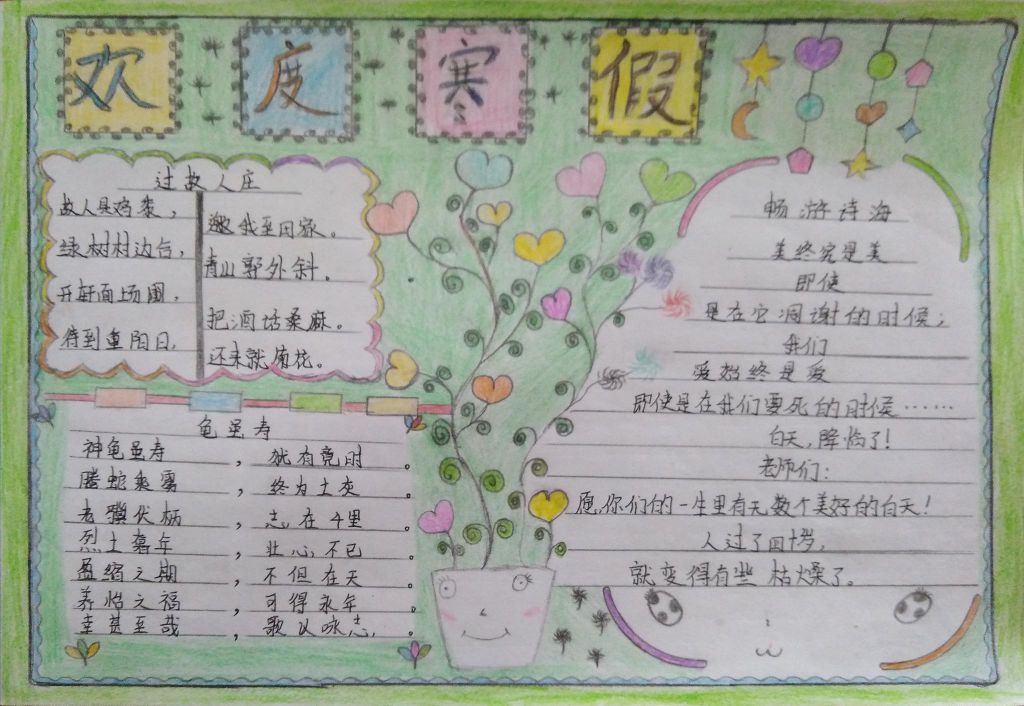 欢度寒假
过故人庄
故人具鸡黍，
邀我至田家。
绿树村边合，
青山郭外斜。
开轩面场圃，
把酒话桑麻。
待到重阳日，
还来就菊花。
龟虽寿
神龟虽寿，犹有竟时。
腾蛇乘雾，终为土灰。
老骥伏枥，志在千里。
烈士暮年，壮心不已。
盈缩之期，不但在天。
养怡之福，可得永年。
幸甚至哉，歌以咏志。
畅游诗海
美终究是美
即使
是在它凋谢的时候；
我们
爱始终是爱
即使是在我们要死的时候……
白天，降临了！
老师们：
愿你们的一生里有无数个美好的白天！
人过了四十岁，
就变得有些枯燥了。